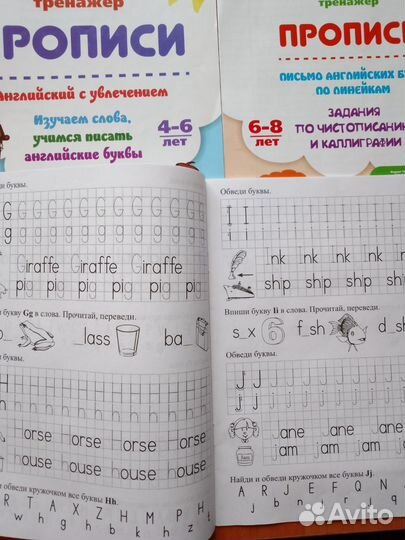 тренажер
ПРОПИСИ
Английский с увлечением
Изучаем слова,
учимся писать
английские буквы
4-6
лет
тренажер
ПРОПИСИ
ПИСЬМО АНГЛИЙСКИХ
ПО ЛИНЕЙКАМ
ЗАДАНИЯ
ПО ЧИСТОПИСАНИЮ
И КАЛЛИГРАФИИ
6-8
лет
буквы.
G G G G G G G G G G
g g g g g g g g g g
Giraffe Giraffe Giraffe
pig pig pig pig pig pig
букву Gg в слова. Прочитай, переведи.
_lass
ba_
буквы.
H H H H H H H H H H
h h h h h h h h h h
orse orse orse orse
ouse ouse ouse ouse
и обведи кружочком все буквы Hh.
R T A X Z H M P H
w h g h b k h z t
Обведи буквы.
I I I I I I I I
i i i i i i i i
Ink Ink Ink Ink
ship ship ship ship
Впиши букву Ii в слова. Прочитай, переведи.
s_x
6
f_sh
d_sh
Обведи буквы.
J J J J J J J J
j j j j j j j j
Jane Jane Jane
Jam
jam jam jam jam
Найди и обведи кружочком все буквы Jj.
A R J E F Q N
j b n r q
Avito